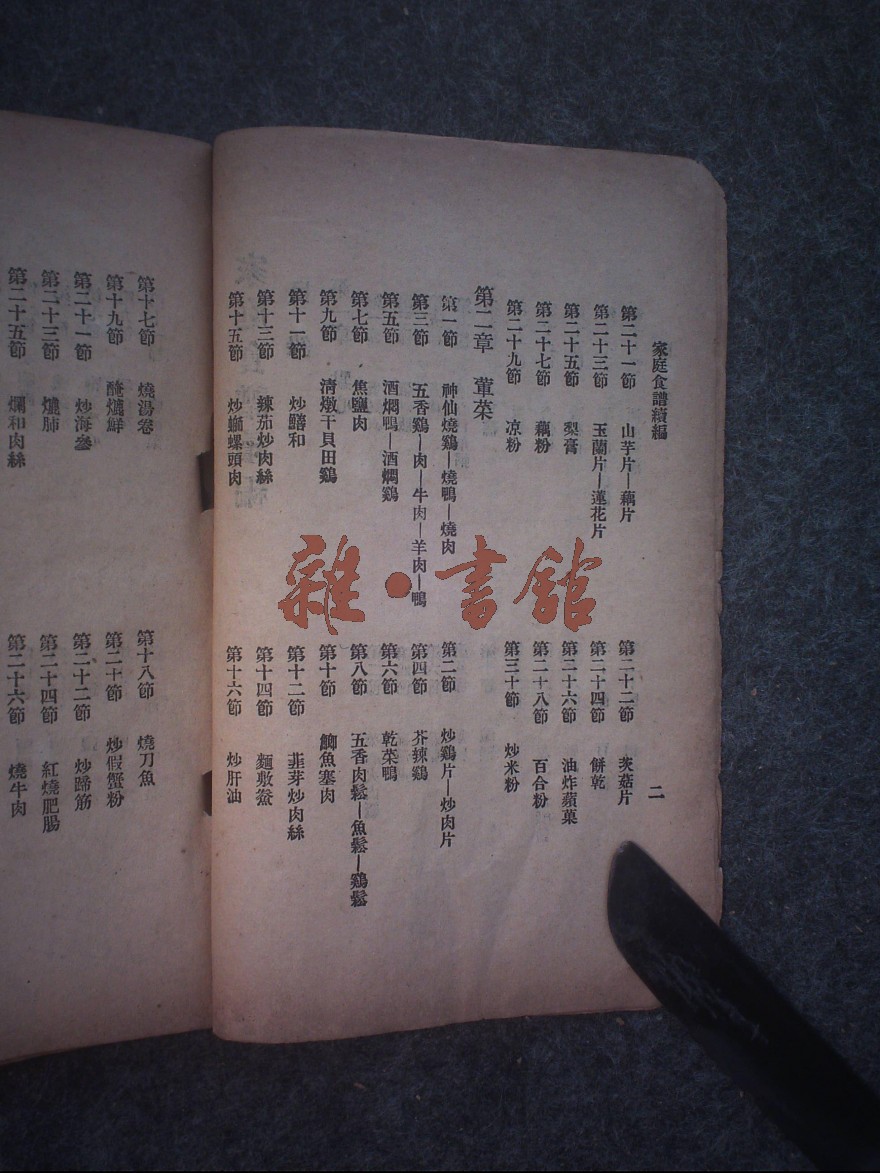 家庭食譜續編
二
第二十一節 山芋片—藕片
第二十二節 茨菇片
第二十三節 玉蘭片—蓮花片
第二十四節 餅乾
第二十五節 梨膏
第二十六節 油炸蘋菓
第二十七節 藕粉
第二十八節 百合粉
第二十九節 凉粉
第三十節 炒米粉
第二章 葷菜
第一節 神仙燒鷄—燒鴨—燒肉
第二節 炒鷄片—炒肉片
第三節 五香鷄—肉—牛肉—羊肉—鴨
第四節 芥辣鷄
第五節 酒燜鴨—酒燜鷄
第六節 乾菜鴨
第七節 焦鹽肉
第八節 五香肉鬆—魚鬆—鷄鬆
第九節 清燉干貝田鷄
第十節 鯽魚塞肉
第十一節 炒鱔和
第十二節 韭芽炒肉絲
第十三節 辣茄炒肉絲
第十四節 麵敷鯗
第十五節 炒螄螺頭肉
第十六節 炒肝油
第十七節 燒湯卷
第十八節 燒刀魚
第十九節 醃爊鮮
第二十節 炒假蟹粉
第二十一節 炒海參
第二十二節 炒蹄筋
第二十三節 爊肺
第二十四節 紅燒肥腸
第二十五節 爛和肉絲
第二十六節 燒牛肉
雜·書館